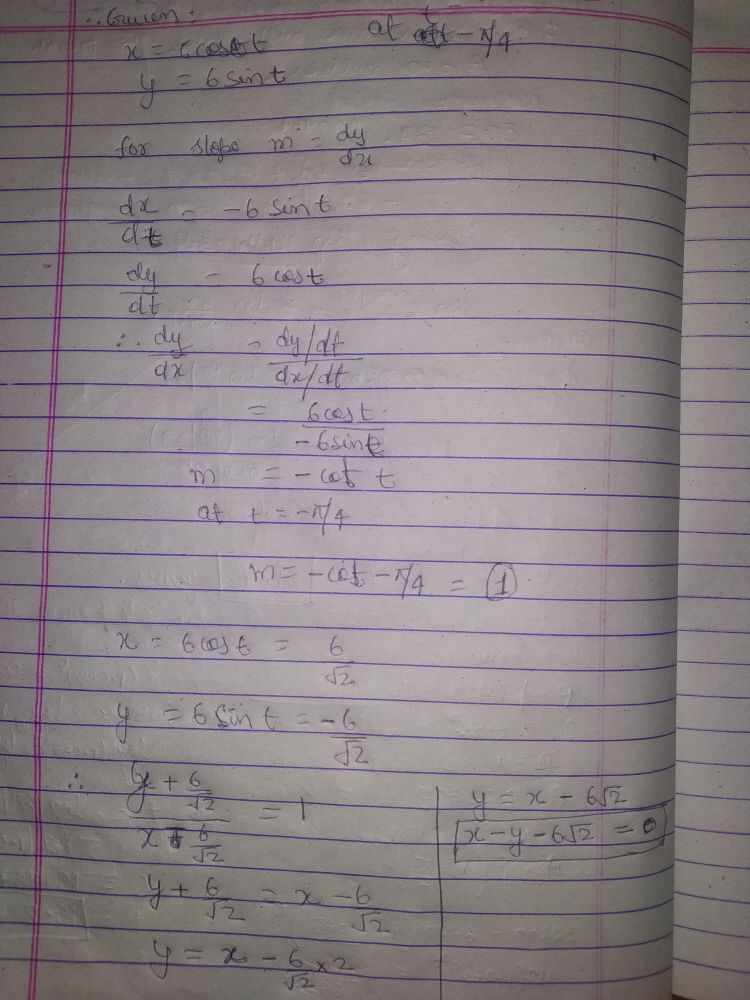 ∴ Given:
x = 6cost at t = -π/4
y = 6sint
for slope m = dy/dx
dx/dt = -6 sint
dy/dt = 6 cost
∴ dy/dx = dy/dt / dx/dt
= 6cost / -6sint
m = -cot t
at t = -π/4
m = -cot -π/4 = 1
x = 6cost = 6/√2
y = 6sint = -6/√2
∴ y + 6/√2 / x - 6/√2 = 1
y + 6/√2 = x - 6/√2
y = x - 6/√2 × 2
y = x - 6√2
x - y - 6√2 = 0